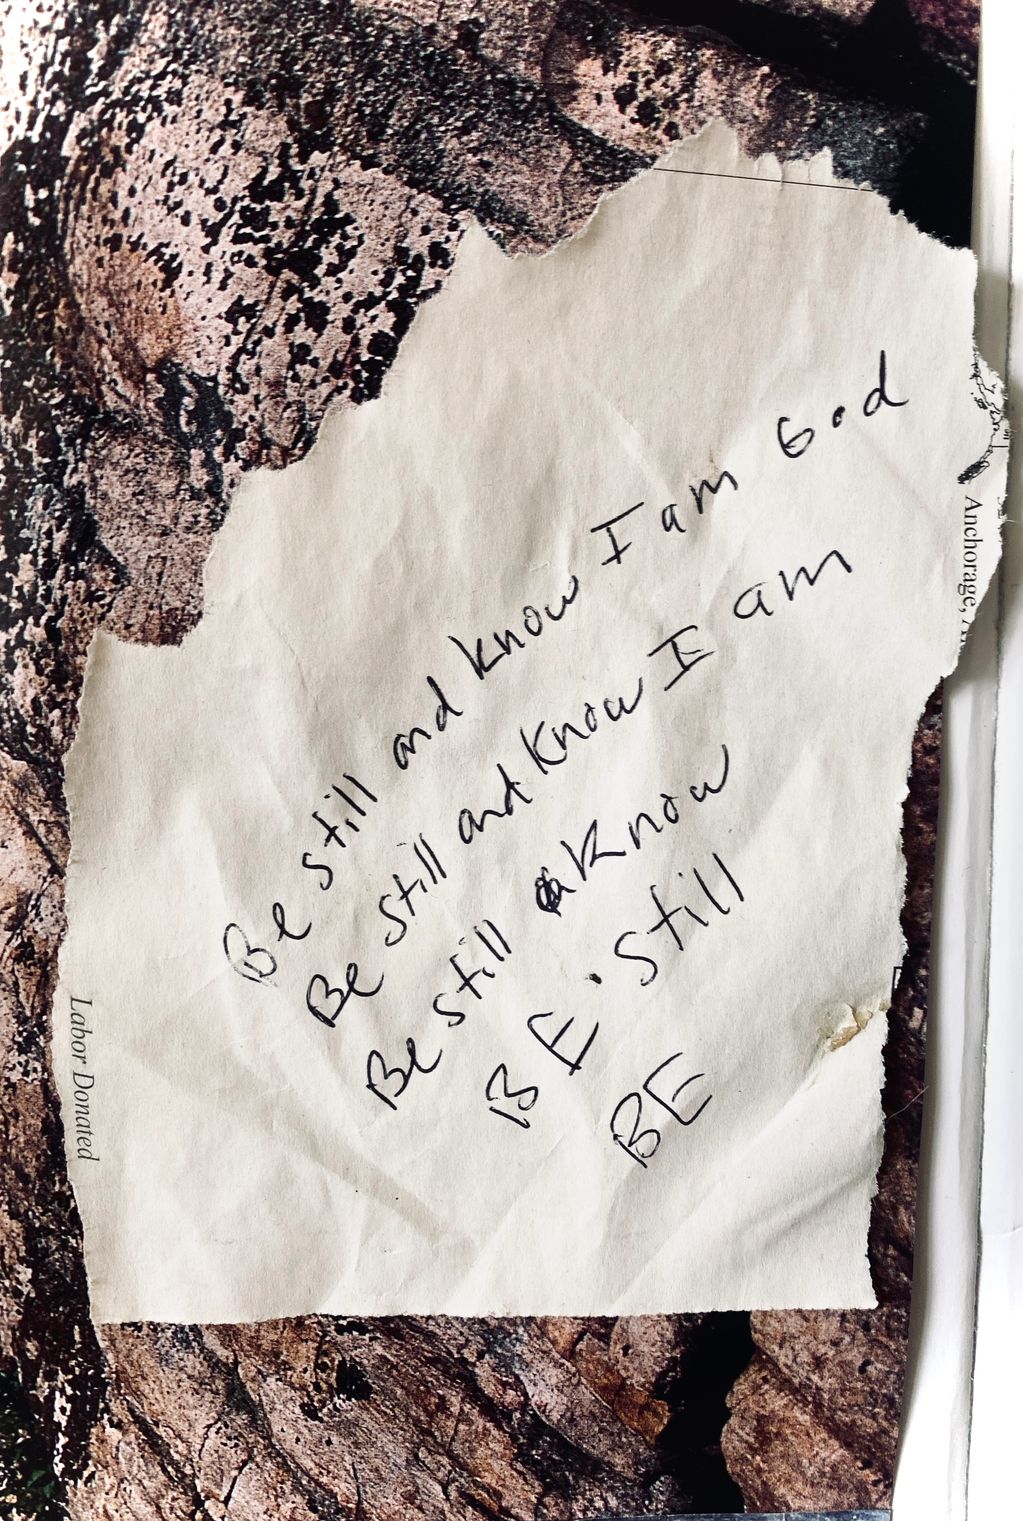 Be still and know I am God
Be still and know I am
Be still & know
BE. Still
BE
Anchorage,
Labor Donated